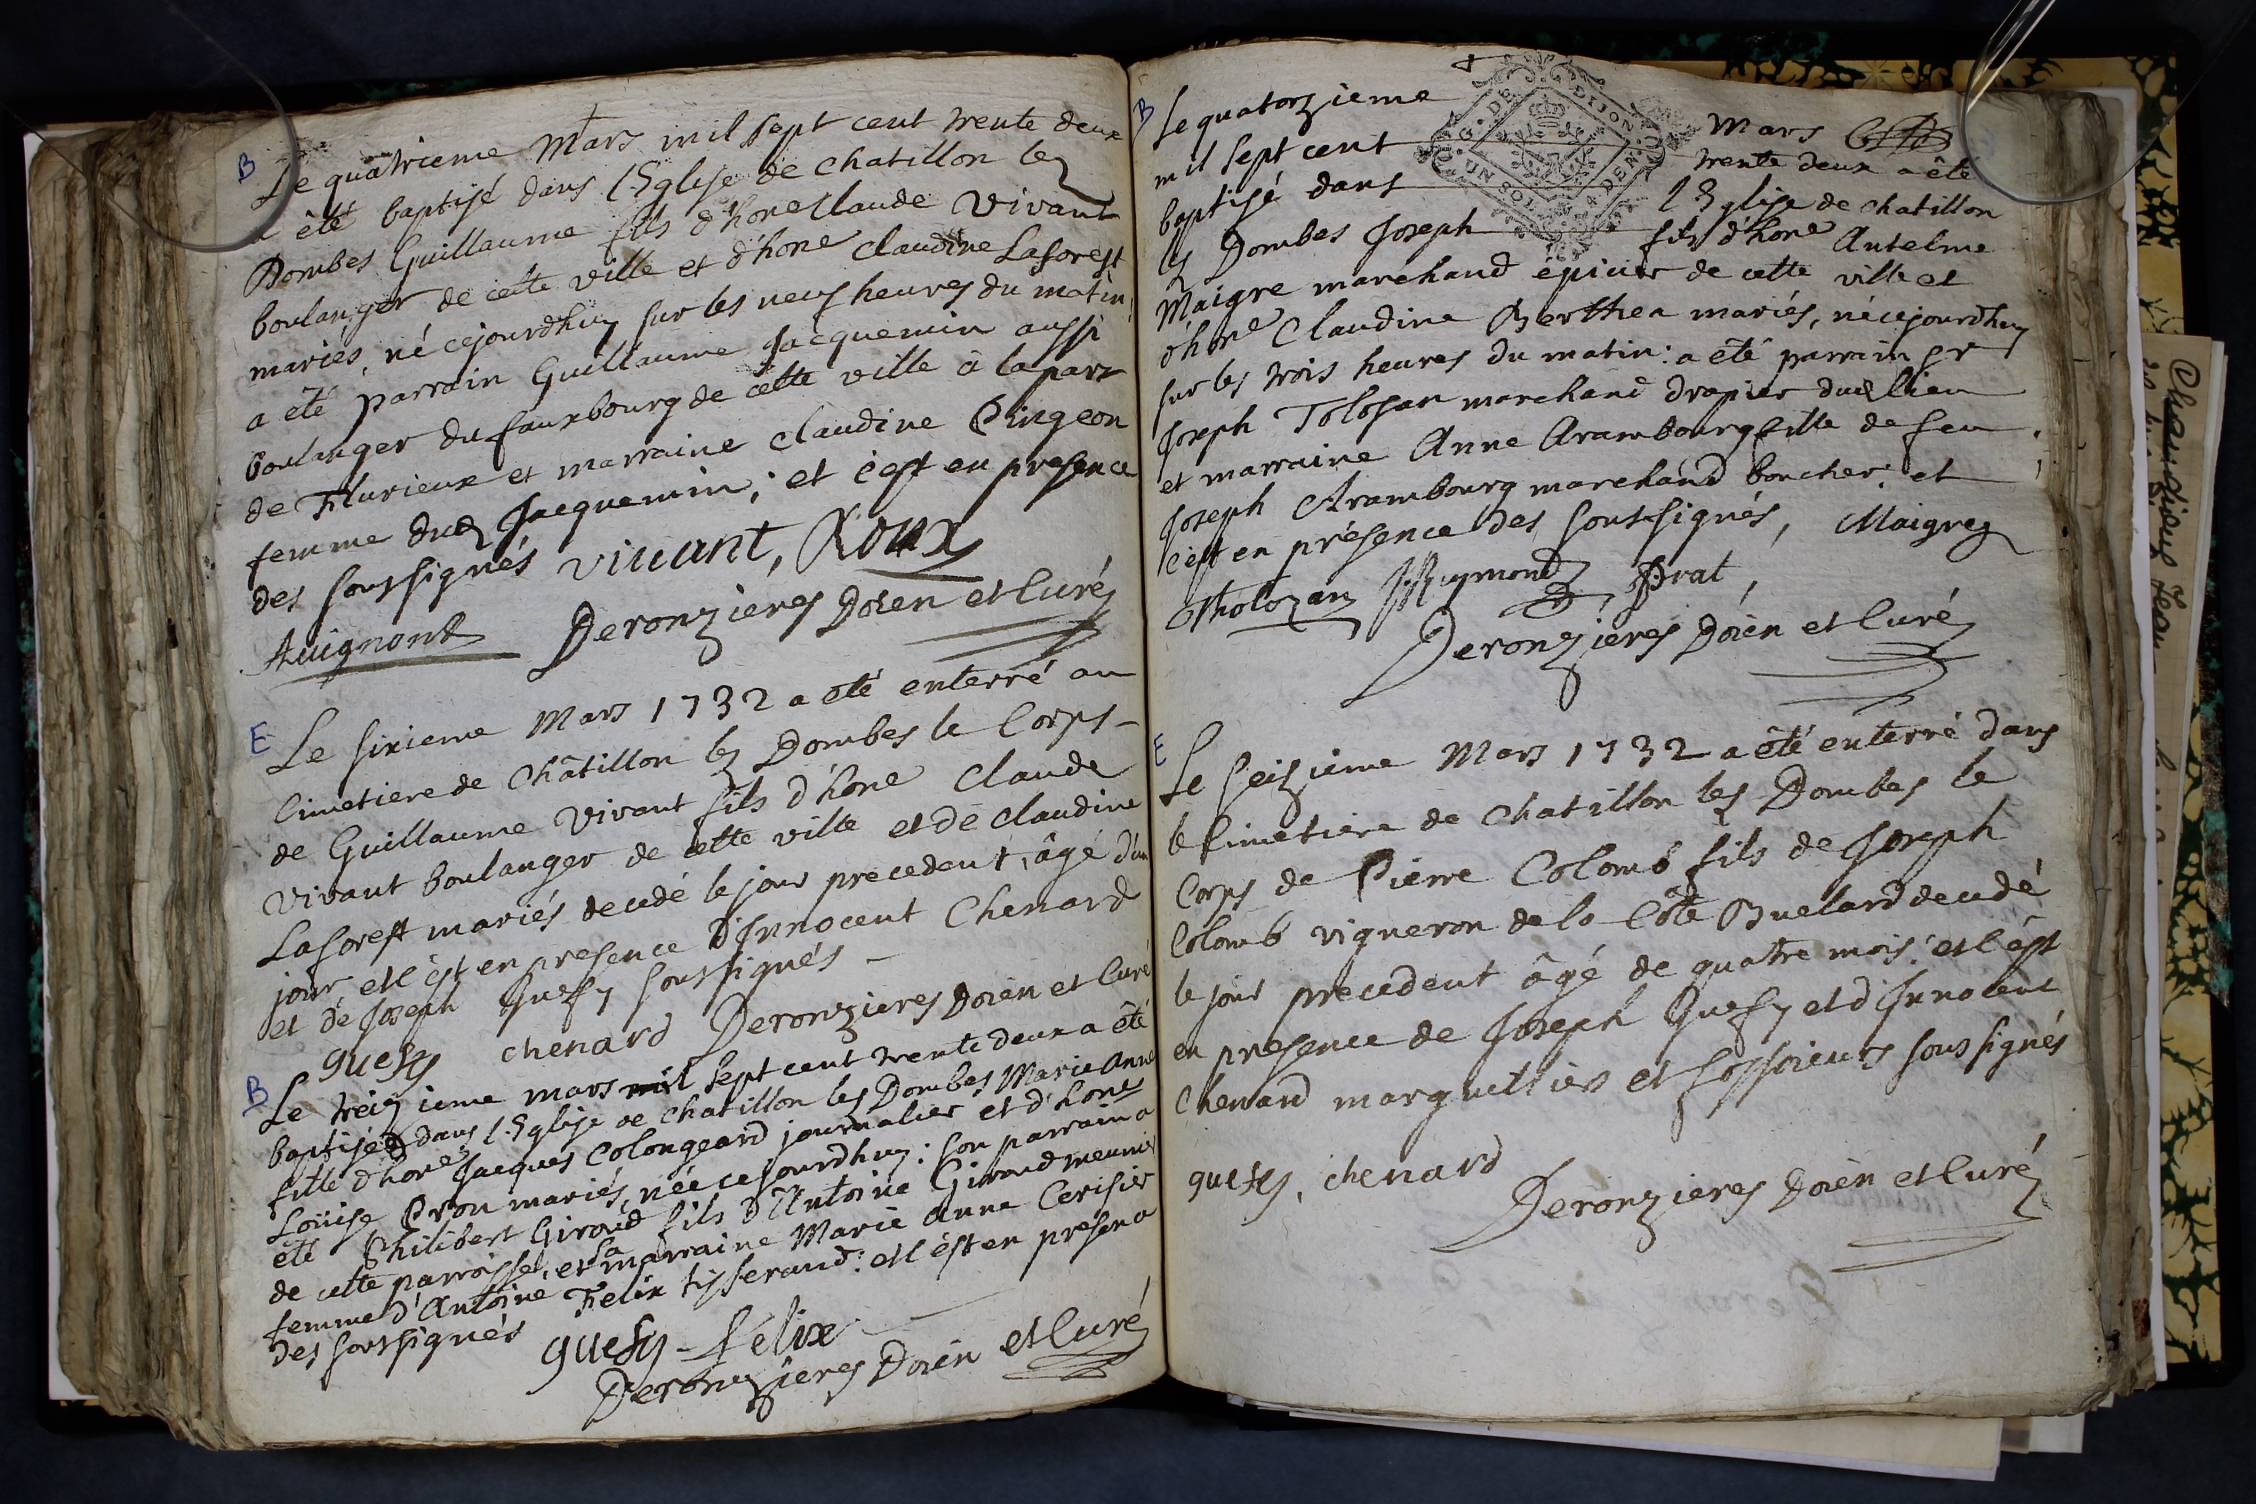 B
Le quatrieme Mars mil sept cent trente deux
a été baptisé dans l'Eglise de chatillon lez
Dombes Guillaume fils d'hone Claude Vivant
boulanger de cette ville et d'hone claudine Laforest
mariés, né cejourdhuy sur les neuf heures du matin;
a été parrain Guillaume Jacquemin aussi
boulanger du fauxbourg de cette ville à la part
de Flurieux et marraine claudine Pingeon
femme dud Jacquemin; et c'est en presence
des soussignés vivant, Roux
Avignont Deronzieres Doien et Curé
E
Le sixieme Mars 1732 a été enterré au
Cimetiere de Châtillon lez Dombes le Corps
de Guillaume Vivant fils d'hone Claude
Vivant boulanger de cette ville et de claudine
Laforest mariés decedé le jour precedent, âgé d'un
jour et c'est en presence d'Innocent Chenard
et de Joseph Guefy soussignés
guefy chenard Deronzieres Doien et Curé
B
Le treizieme mars mil sept cent trente deux a été
baptiséé dans l'Eglise de chatillon les Dombes Marie Anne
fille d'hone Jacques Colongeard journalier et d'hone
Loüise Pron mariés, née cejourdhuy: son parrain a
été Philibert Giroud fils d'Antoine Giroud meunier
de cette parroisse, et sa marraine Marie Anne Cerisier
femme d'Antoine Felix tisserand: et c'est en presence
des soussignés guefy - félix
Deronzieres Doien et Curé
B
Le quatorzieme Mars
mil sept cent trente deux a été
baptisé dans l'Eglise de chatillon
les Dombes Joseph fils d'hone Antelme
Maigre marchand épicier de cette ville et
d'hone Claudine Berthea mariés, né cejourdhuy
sur les trois heures du matin: a été parrain sr
Joseph Tolosan marchand drapier dud lieu
et marraine Anne Arambourg fille de feu
Joseph Arambourg marchand boucher: et
c'est en présence des soussignés, Maigre
Tholozan Prat,
Deronzieres Doien et Curé
G. DE DIJON
UN SOL 4 DEN.
E
Le seizieme Mars 1732 a été enterré dans
le Cimetiere de chatillon les Dombes le
Corps de Pierre Colomb fils de Joseph
Colomb vigneron de la Côte Buelard decedé
le jour precedent âgé de quatre mois: et c'est
en presence de Joseph Guefy et d'Innocent
Chenard marguillier et fossoieurs soussignés
guefy, chenard Deronzieres Doien et Curé